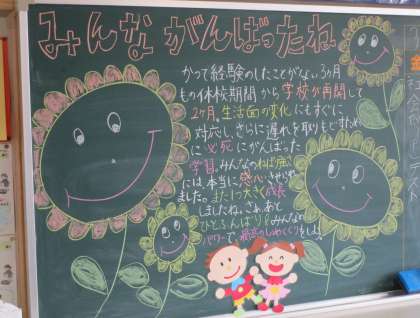 みんながんばったね
かつて経験のしたことがない3ヶ月
もの休校期間から学校が再開して
2ヶ月。生活面の変化にもすぐに
対応し、さらに遅れを取りもどすため
に必死にがんばった
学習。みんなのねばり強さ
には、本当に感心させられ
ました。また1つ大きく成長
しましたね。さあ、あと
ひとふんばり!みんなの
パワーで、最高のしめくくりをしよう
金